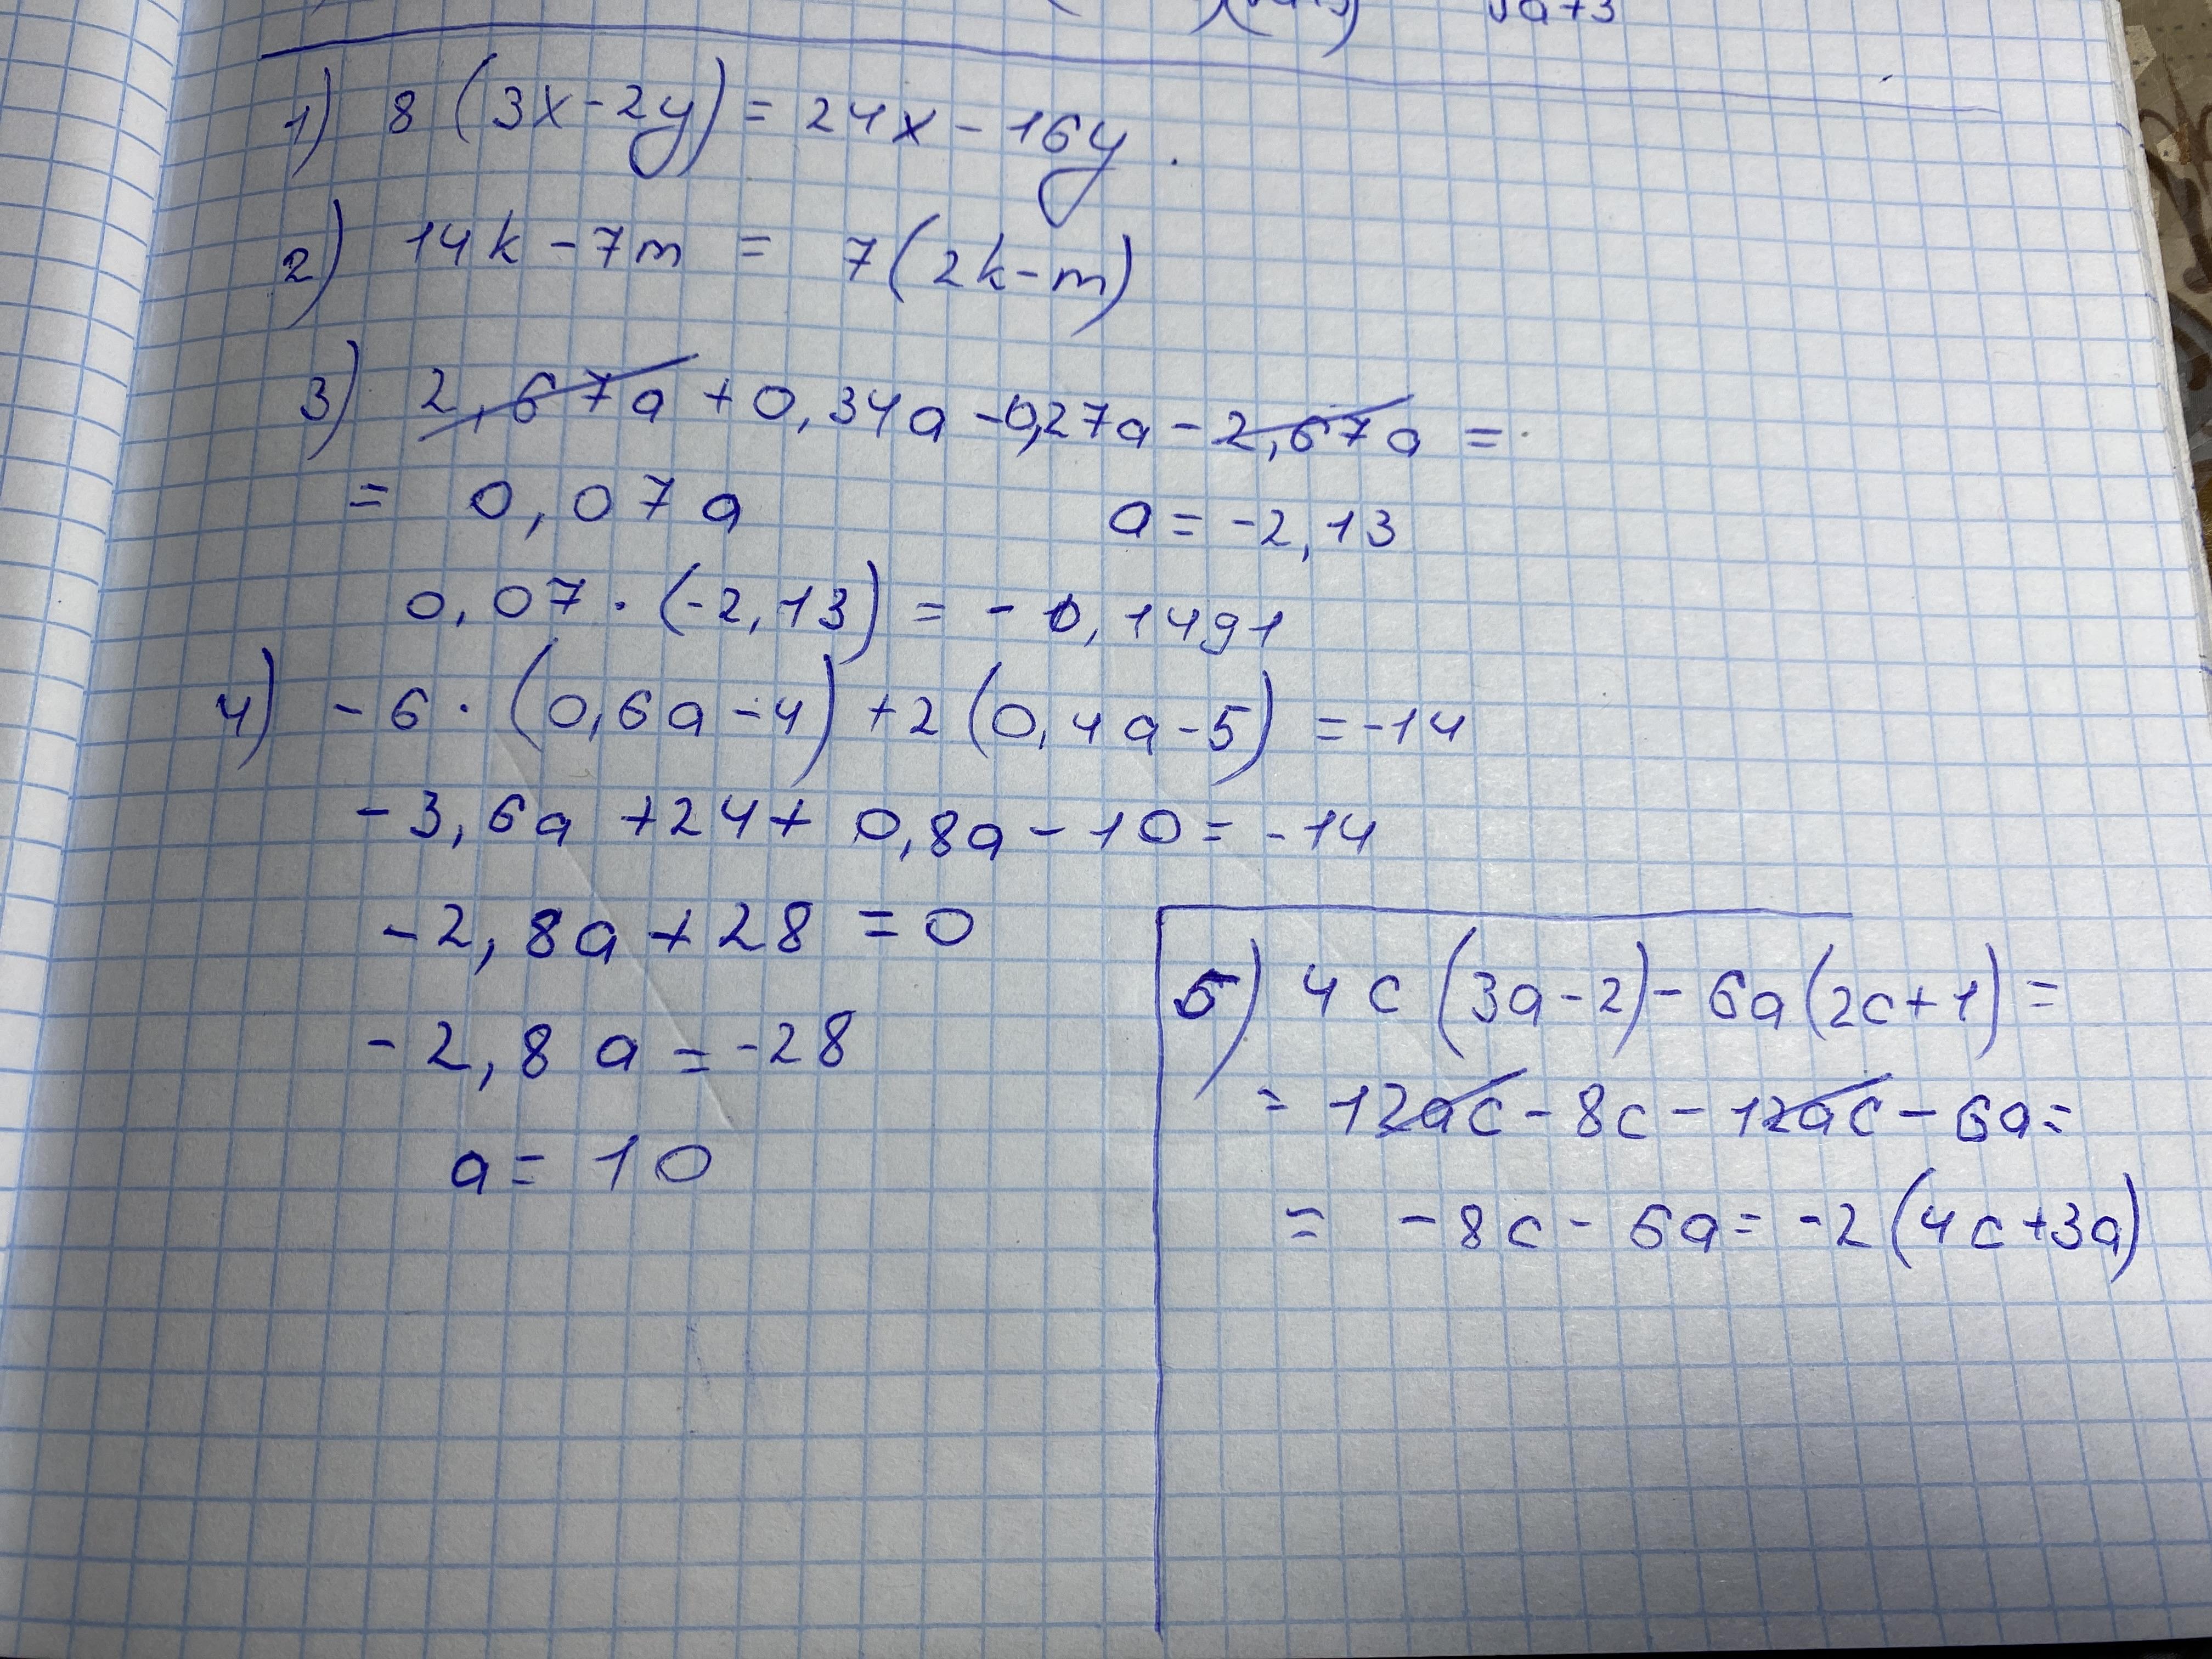 5a+3
1) 8 (3x-2y) = 24x - 16y.
2) 14k - 7m = 7(2k-m)
3) 2,67a + 0,34a - 0,27a - 2,67a =
= 0,07a a = -2,13
0,07 · (-2,13) = - 0,1491
4) - 6 · (0,6a - 4) + 2 (0,4a - 5) = -14
- 3,6a + 24 + 0,8a - 10 = -14
-2,8a + 28 = 0
- 2,8 a = -28
a = 10
5) 4c (3a-2) - 6a (2c+1) =
= 12ac - 8c - 12ac - 6a =
= - 8c - 6a = -2 (4c+3a)